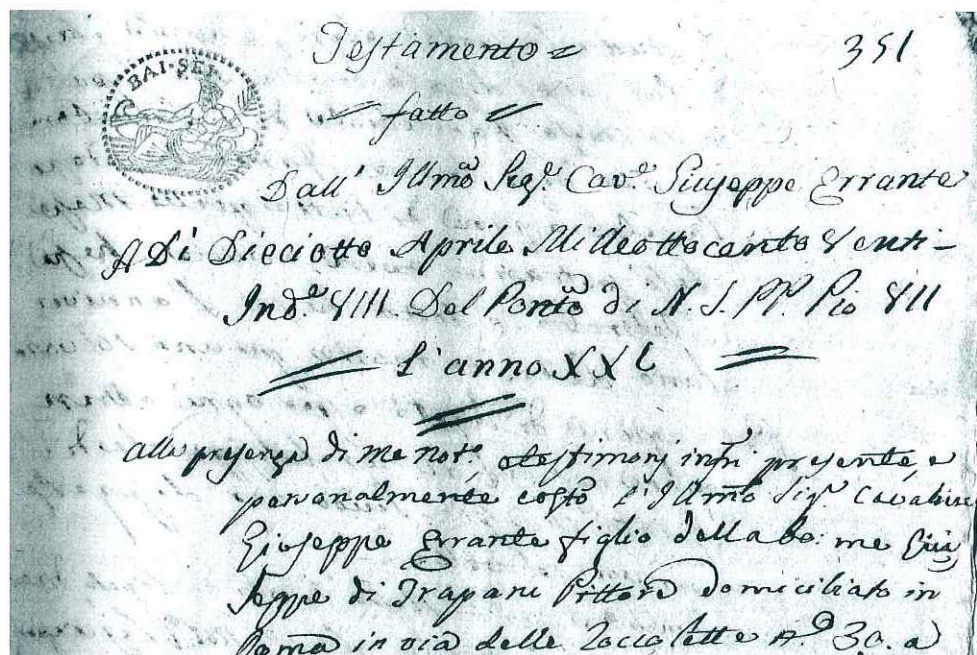 Testamento = 351
BAI·SEI·
= fatto =
Dall' Illmo Sigr. Cave. Giuseppe Errante
A Di Dieciotto Aprile Milleottocento Venti-
Inde. VIII. Del Ponto di N. S. PP. Pio VII
l'anno XXI
alla presenza di me Note. e testimonj infri presente, e
personalmente costo l'Illmo Sigr. Cavaliere
Giuseppe Errante figlio della bo: me Giu
seppe di Trapani Pittore domiciliato in
Roma in via delle Zoccolette No 30. a